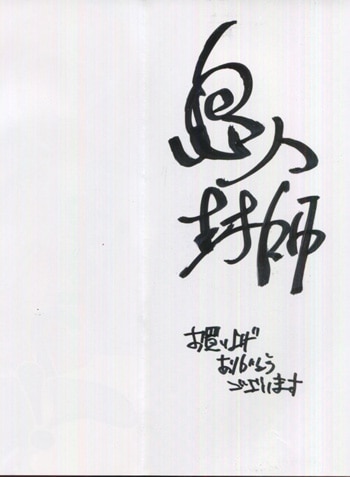 封師
お買い上げ
ありがとう
ございます